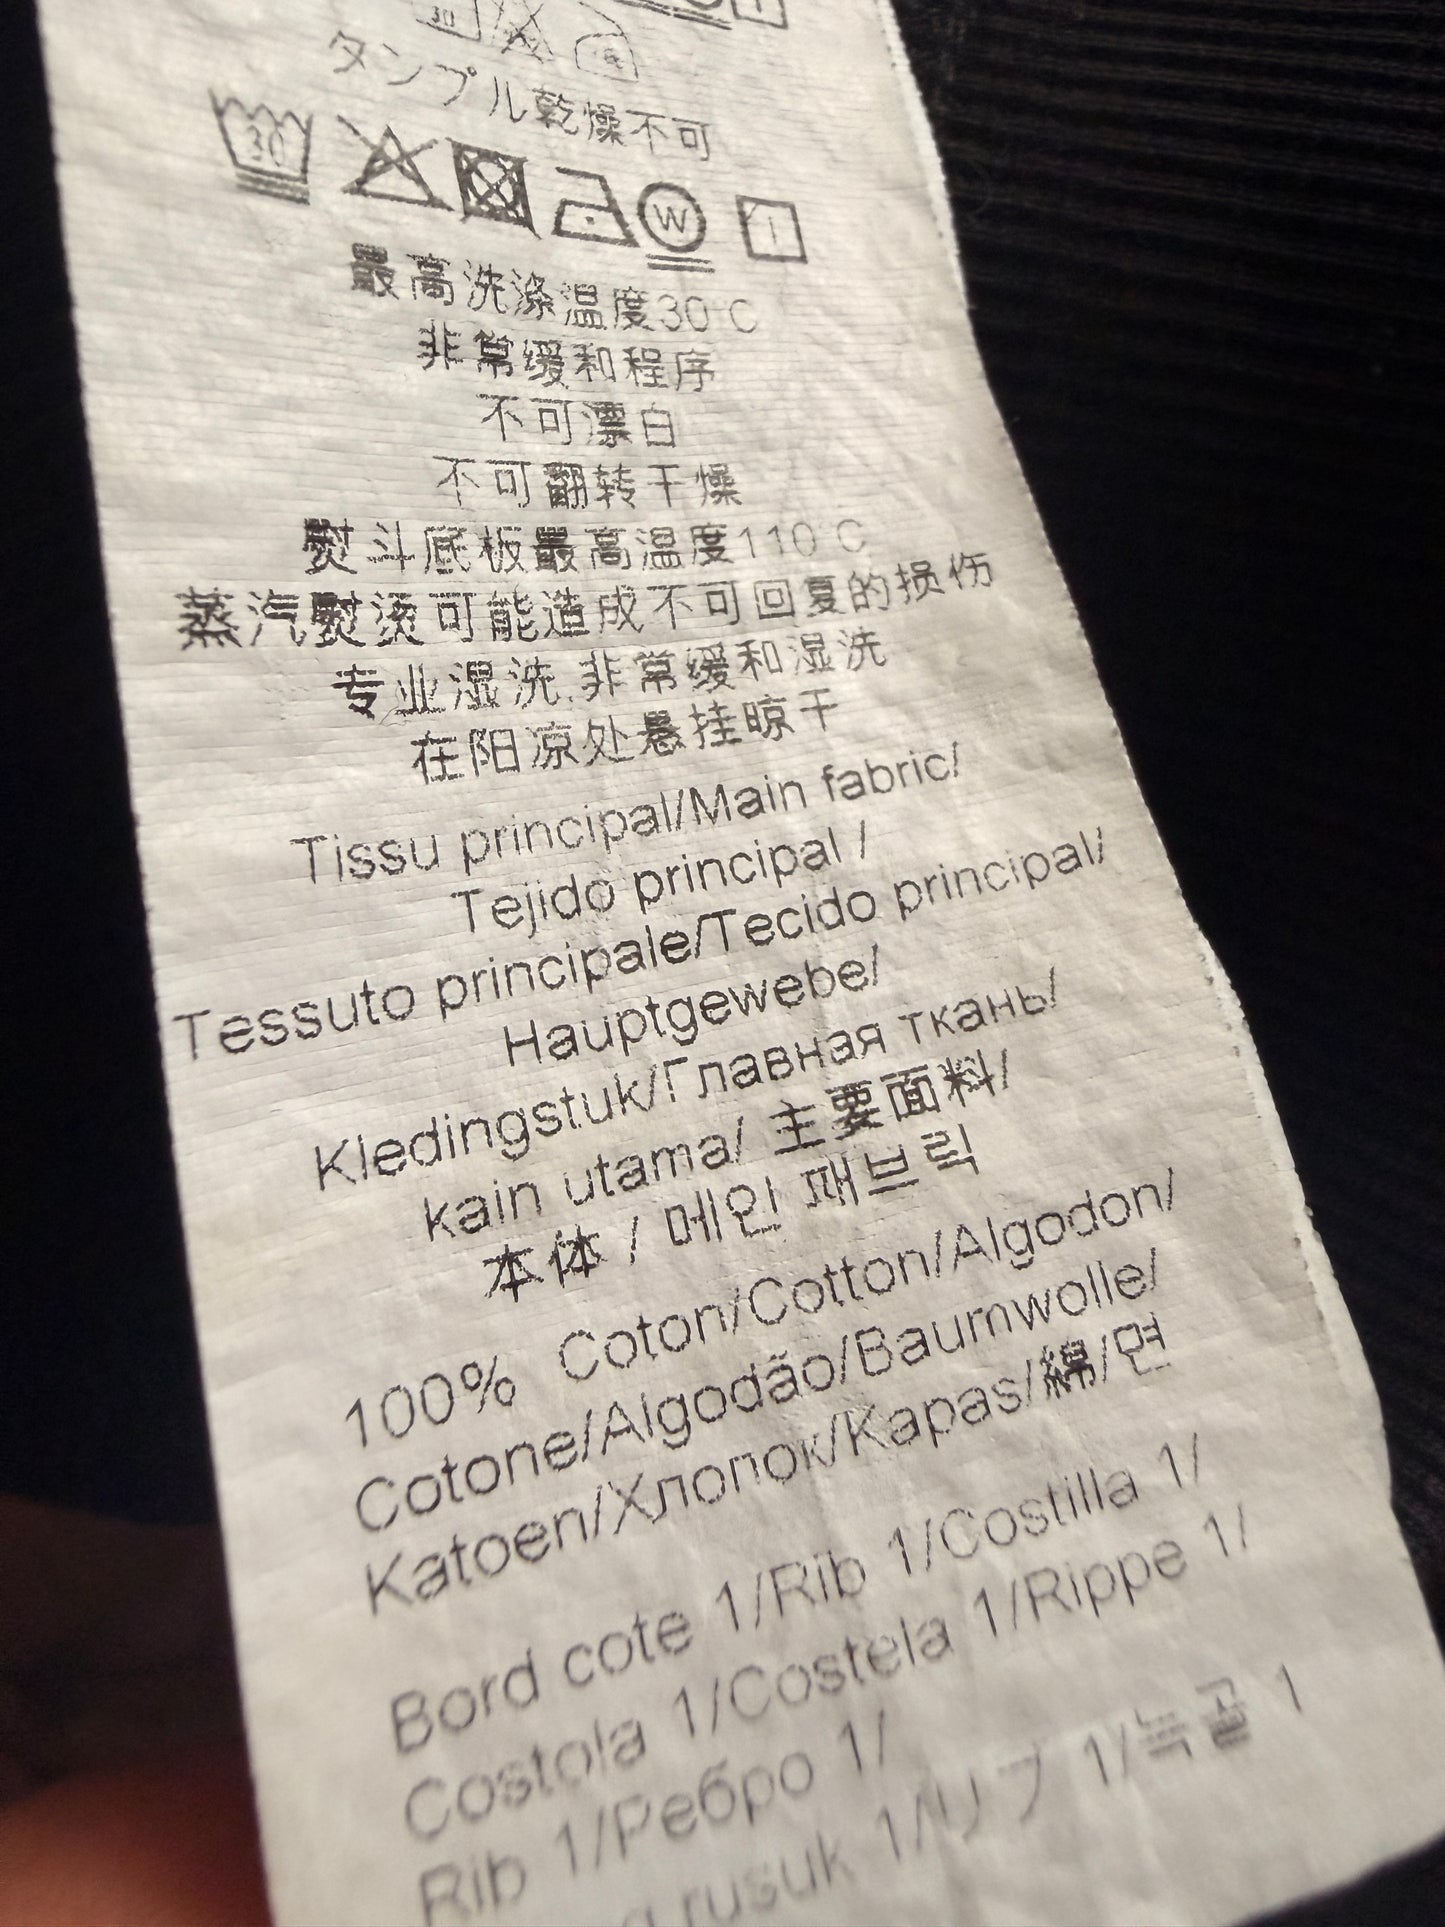 タンブル乾燥不可
30
W
最高洗涤温度30°C
非常缓和程序
不可漂白
不可翻转干燥
熨斗底板最高温度110°C
蒸汽熨烫可能造成不可回复的损伤
专业湿洗,非常缓和湿洗
在阳凉处悬挂晾干
Tissu principal/Main fabric/
Tejido principal /
Tessuto principale/Tecido principal/
Hauptgewebe/
Kledingstuk/Главная ткань/
kain utama/ 主要面料/
本体 / 메인 패브릭
100% Coton/Cotton/Algodon/
Cotone/Algodão/Baumwolle/
Katoen/Хлопок/Kapas/綿/면
Bord cote 1/Rib 1/Costilla 1/
Costola 1/Costela 1/Rippe 1/
Rib 1/Ребро 1/
rusuk 1/リブ 1/늑골 1